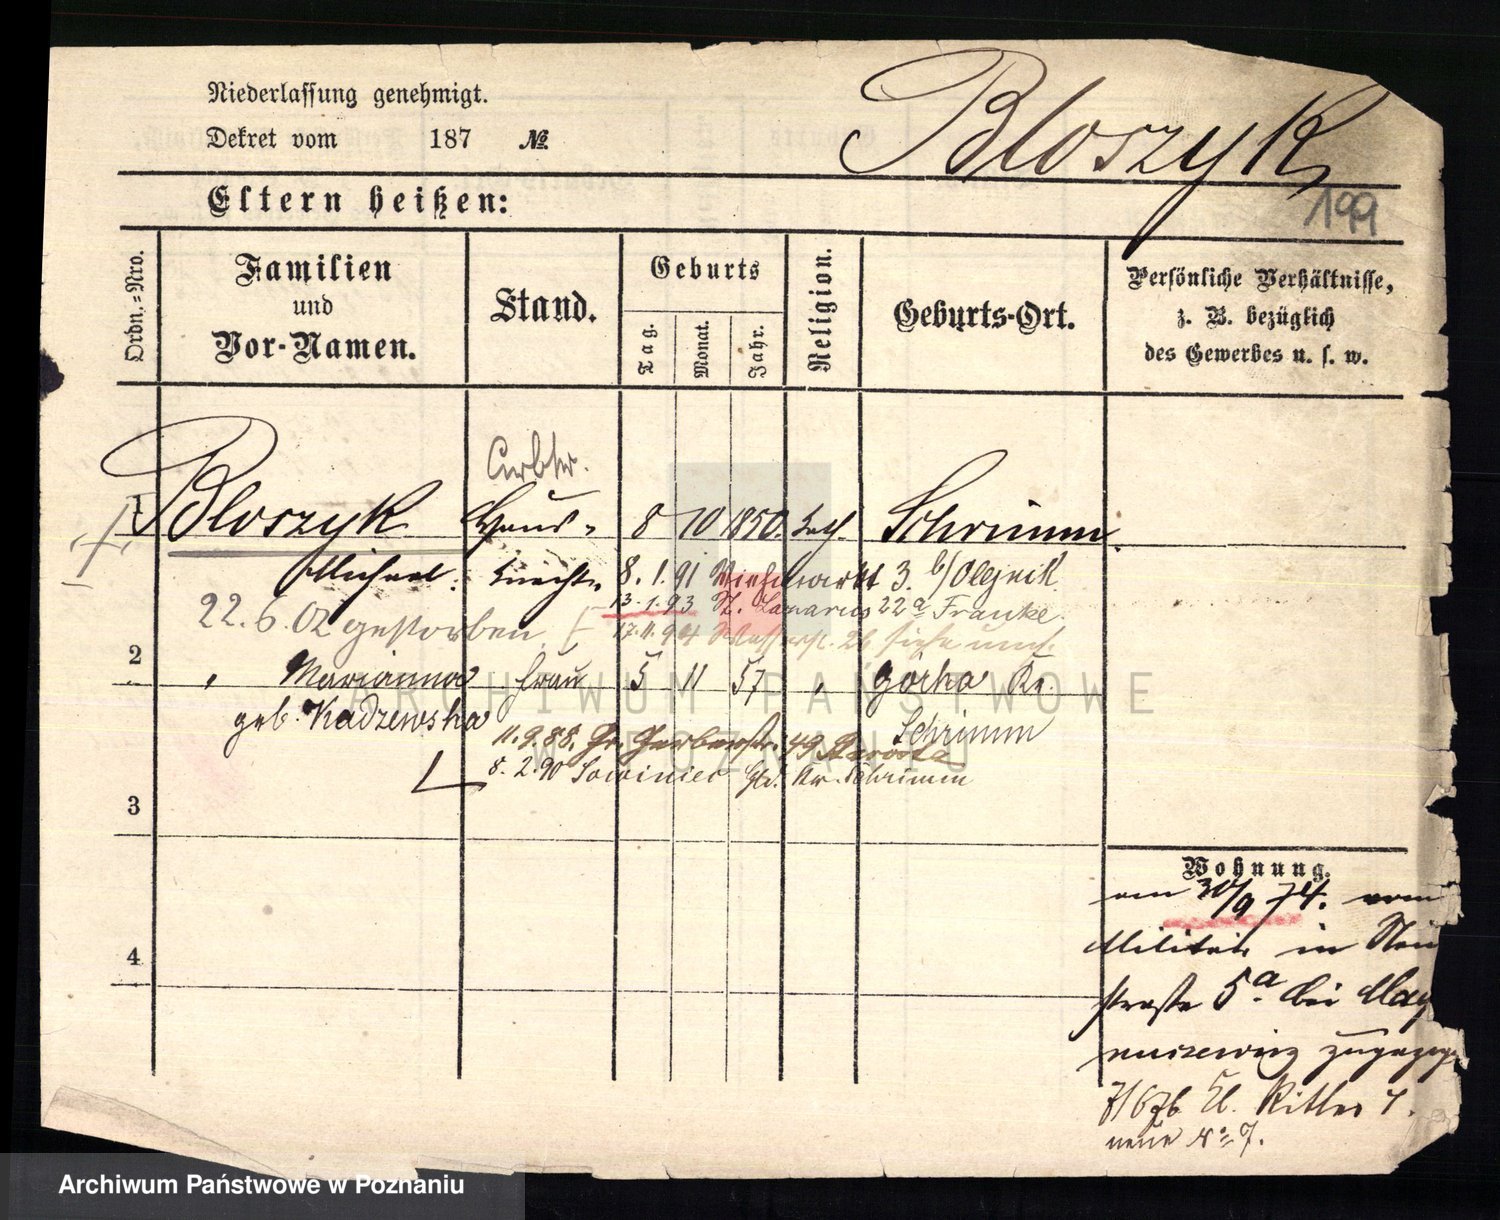 Niederlassung genehmigt.
Dekret vom 187 №
Bloszyk
199
Eltern heißen:
Ordn.-Nro.
Familien
und
Vor-Namen.
Stand.
Geburts
Tag.
Monat.
Jahr.
Religion.
Geburts-Ort.
Persönliche Verhältnisse,
z. B. bezüglich
des Gewerbes u. s. w.
Arbtr.
1 Bloszyk Haus- 8 10 1850. kath. Schrimm
Michael. knecht. 8. 1. 91 Viehmarkt 3. b/ Olejnik
13. 1. 93 St. Lazarus 22a Franke.
22. 6. 02 gestorben 17. 11. 94 26 siehe
2 " Marianna Frau 5 11 57 " Gorka Kr.
geb. Kadzewska Schrimm
11. 9. 88. Gr. Gerberstr. 49
8. 2. 90 Sowiniec Kr. Schrimm
3
4
Wohnung.
am 30/9 74. vom
Militär in Neu
straße 5a bei May
7/6 76 Kl. Ritter
neue No 7.
ARCHIWUM PAŃSTWOWE
W POZNANIU
Archiwum Państwowe w Poznaniu